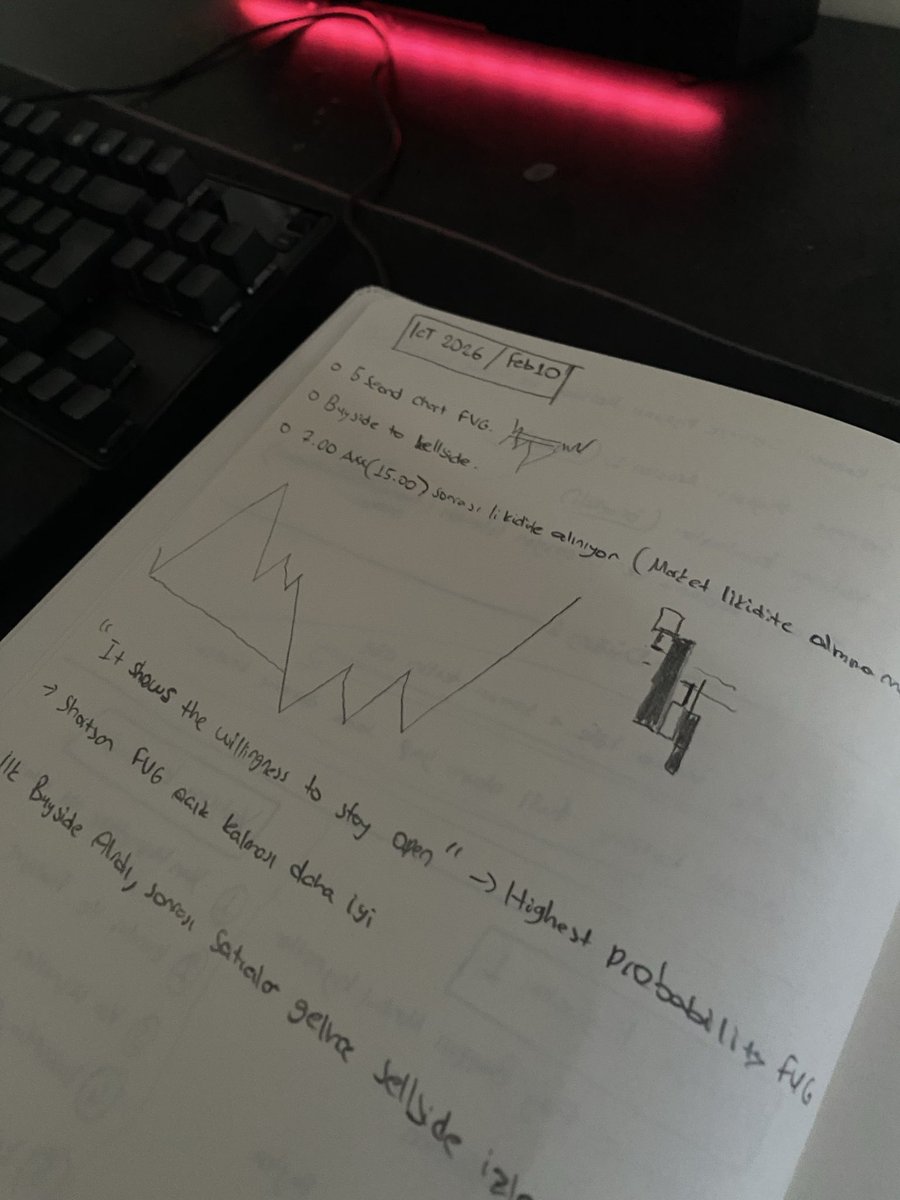 ICT 2026 / Feb10
o 5 Second chart FVG.
o Buyside to sellside.
o 7.00 (15.00) sonrası likidite alınıyor (Market likidite alma
"It shows the willingness to stay open" → Highest probability FVG
→ Shotson FVG acık kalması daha iyi
ilk Buyside Aldı, sonrası satıcılar gelince sellside